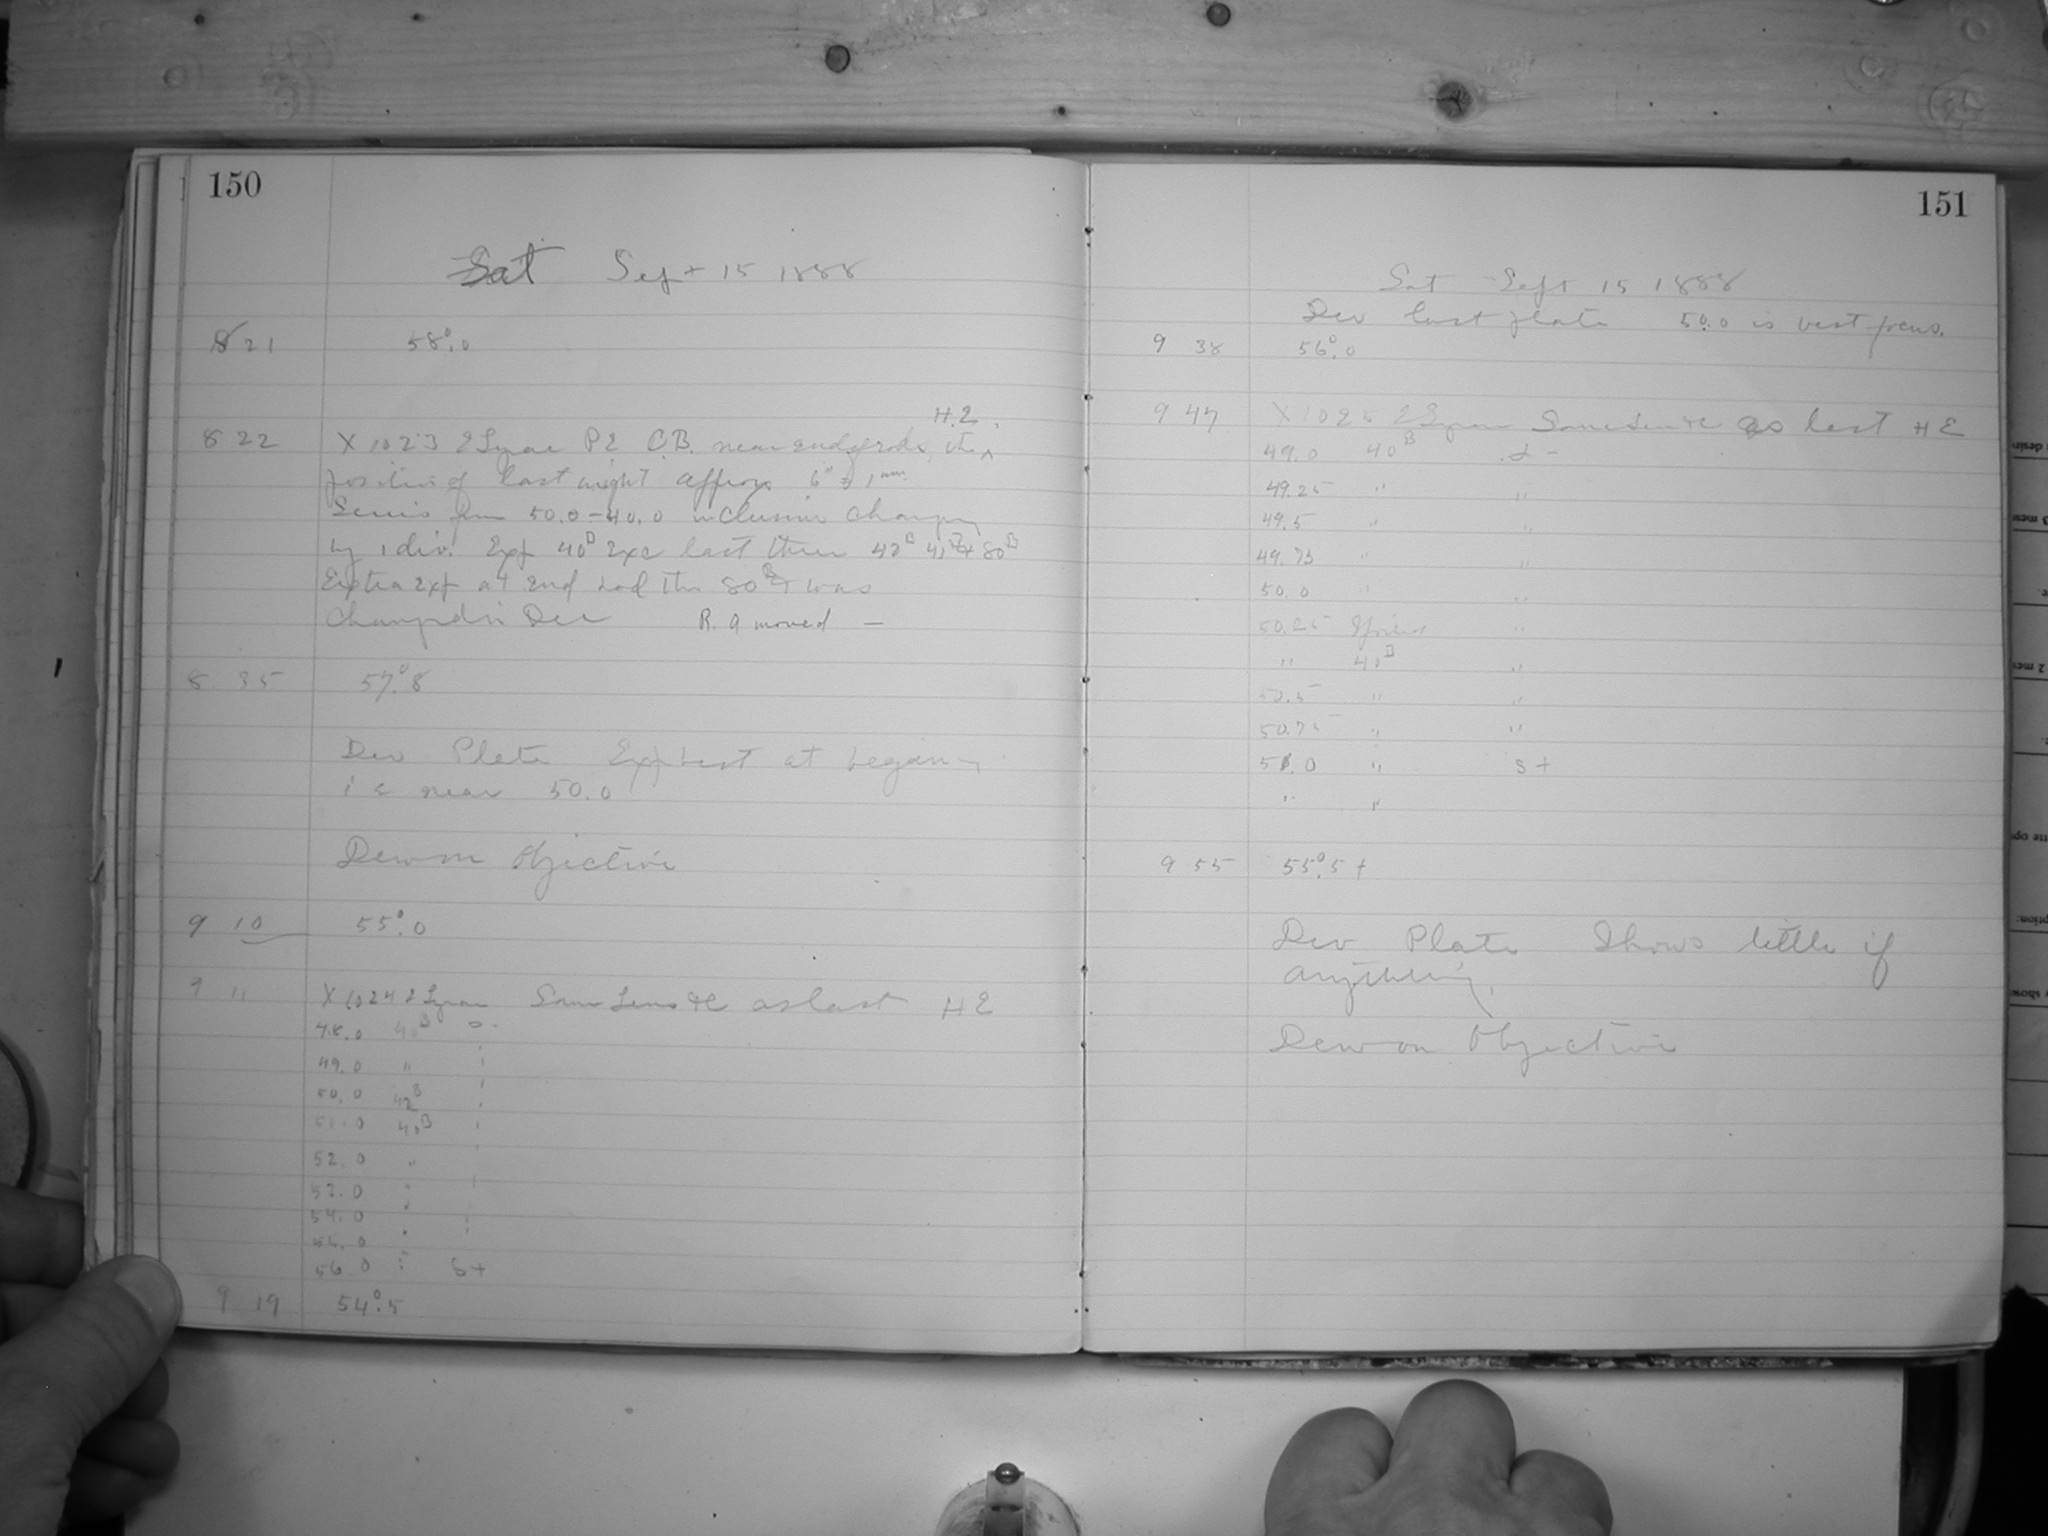 150
Sat Sept 15 1888
8 21 58°.0
H.E.
8 22 X 1023 E Lyrae P E C.B. near end of rods, the
position of last night approx 6" = 1 mm.
Series from 50.0 - 40.0 inclusive changing
by 1 div. Exp 40B exc last three 42B 80B
Extra exp at end and the 80B was
changed in Dec R.A moved —
8 35 57°.8
Dev Plate Exp best at beganing
i e near 50.0
Dew on Objective
9 10 55°.0
9 11 X 1024 E Lyrae Same Lens &c as last H E
48.0 40B
49.0 "
50.0 42B
51.0 40B
52.0 "
53.0 "
54.0 "
55.0 "
56.0 " S+
9 19 54°.5
151
Sat Sept 15 1888
Dev last plate 50.0 is best focus.
9 38 56°.0
9 47 X 1025 E Lyrae Same Lens &c as last H E
49.0 40B
49.25 " "
49.5 " "
49.75 " "
50.0 " "
50.25 "
" 40B "
50.5 " "
50.75 " "
51.0 " S+
" "
9 55 55°.5+
Dev Plate Shows little if
anything.
Dew on Objective